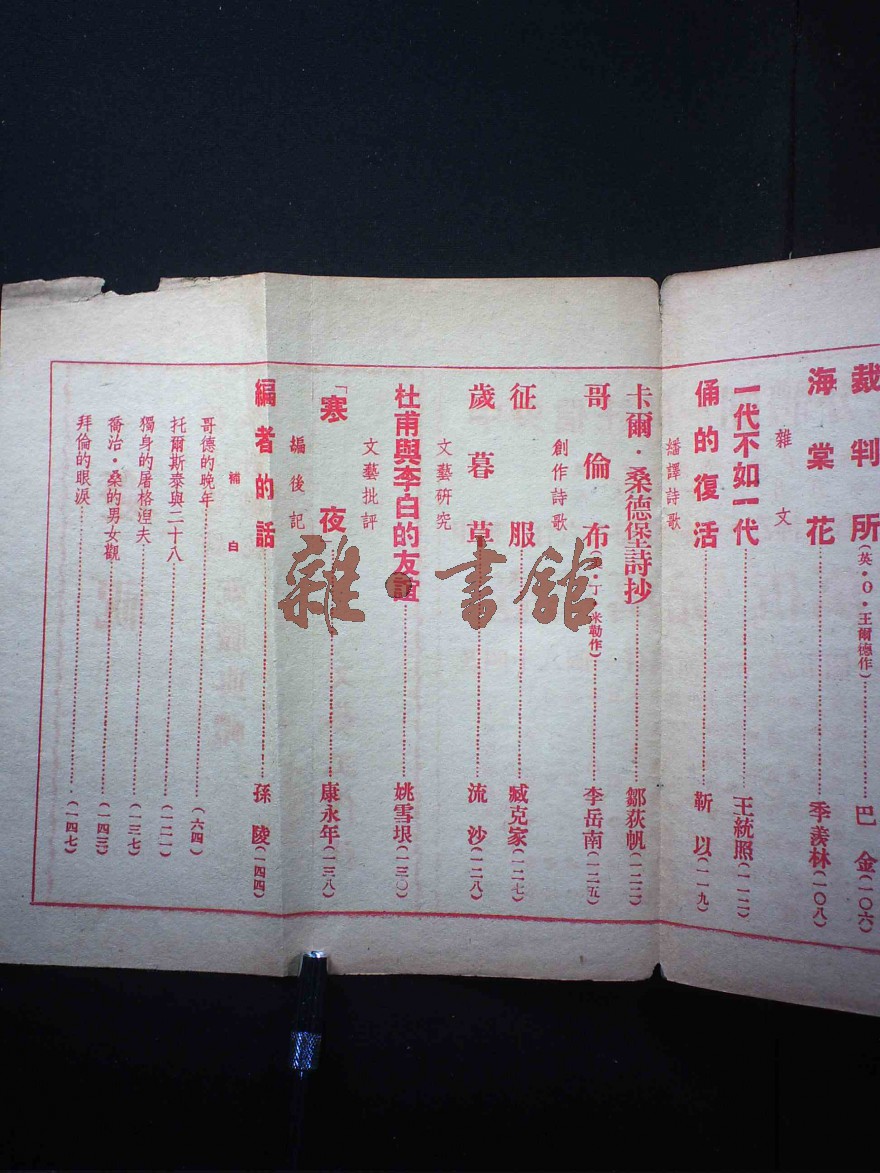 裁判所(英·O·王爾德作)……巴金(一〇六)
海棠花……季羨林(一〇八)
雜文
一代不如一代……王統照(一一二)
俑的復活……靳以(一一九)
繙譯詩歌
卡爾·桑德堡詩抄……鄒荻帆(一二二)
哥倫布(·丁·米勒作)……李岳南(一二五)
創作詩歌
征服……臧克家(一二七)
歲暮草……流沙(一二八)
文藝研究
杜甫與李白的友誼……姚雪垠(一三〇)
文藝批評
「寒夜……康永年(一三八)
編後記
編者的話……孫陵(一四四)
補白
哥德的晚年……(六四)
托爾斯泰與二十八……(一二一)
獨身的屠格涅夫……(一三七)
喬治·桑的男女觀……(一四三)
拜倫的眼淚……(一四七)
雜·書館